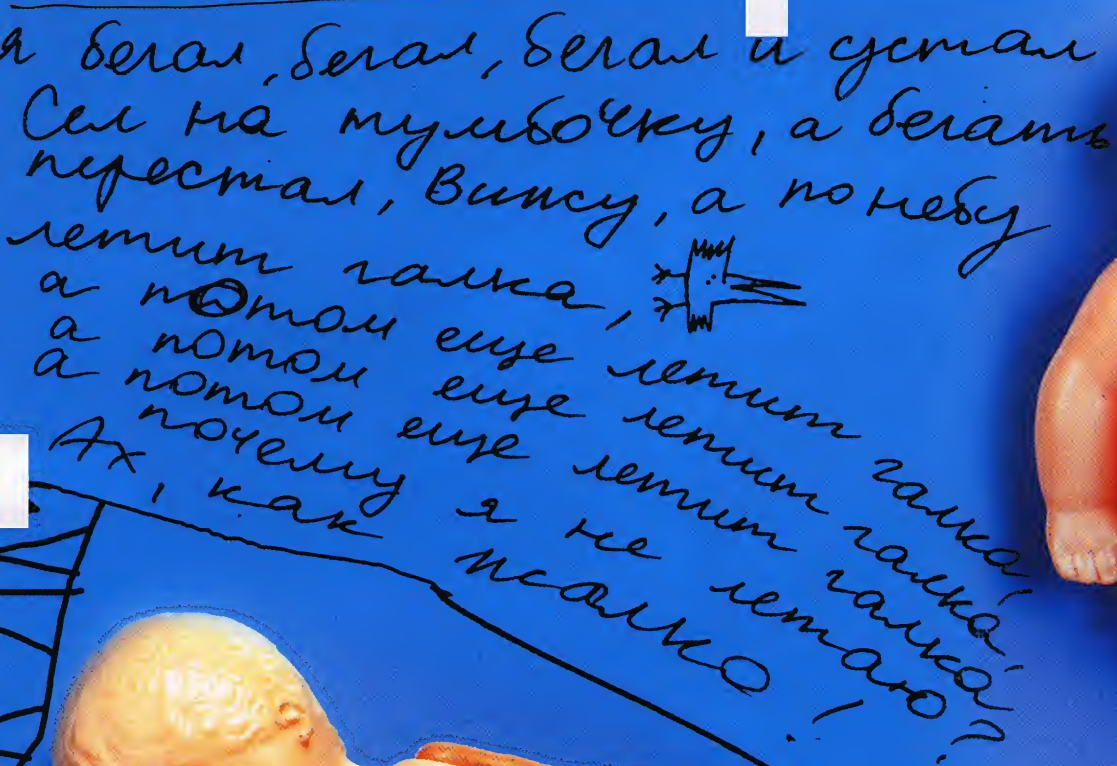 я бегал, бегал, бегал и устал
Сел на тумбочку, а бегать
перестал, Вижу, а по небу
летит галка,
а потом еще летит галка,
а потом еще летит галка,
а потом еще летит галка,
почему я не летаю?
Ах, как жалко!